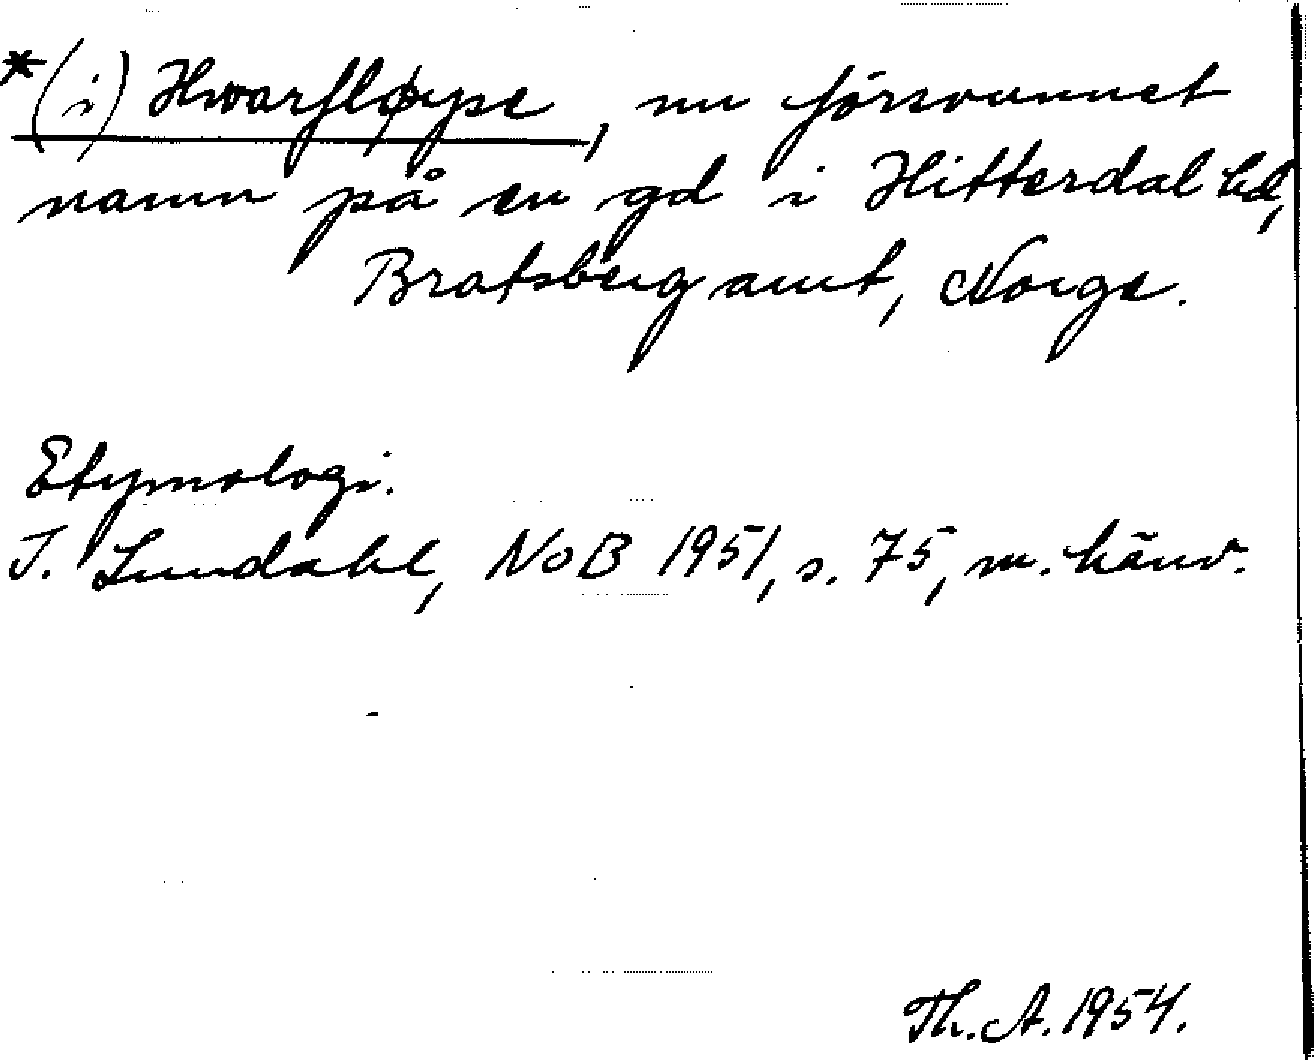 *(i) Hwarfløype, nu försvunnet
namn på en gd i Hitterdal hd,
Bratsberg amt, Norge.
Etymologi.
I. Lundahl, NoB 1951, s. 75, m. hänv.
Th. A. 1954.